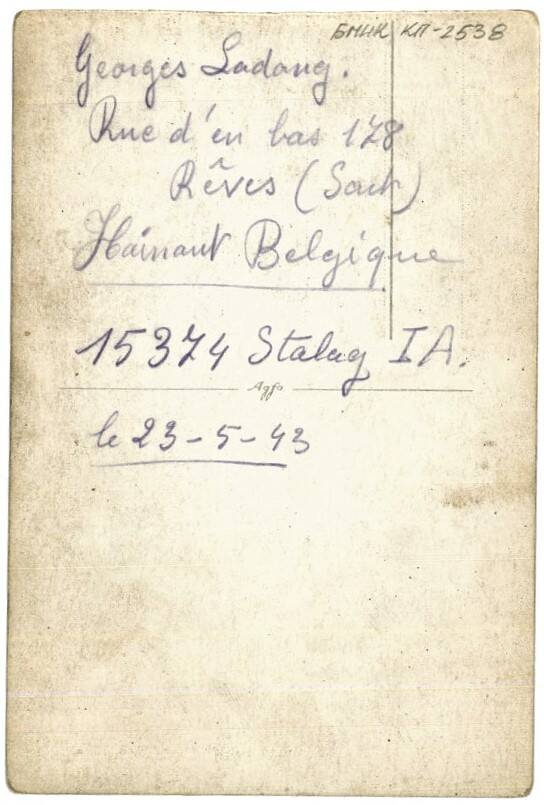 БМИК КП-2538
Georges Ladang.
Rue d'en bas 178
Rêves (Sart)
Hainaut Belgique
15374 Stalag IA.
Agfa
le 23-5-43